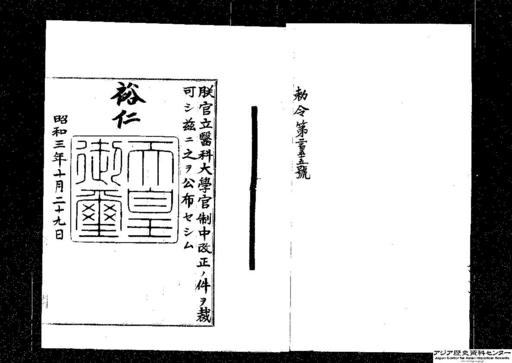 勅令第二百五十五號
朕官立醫科大學官制中改正ノ件ヲ裁
可シ茲ニ之ヲ公布セシム
裕仁
天皇
御璽
昭和三年十月二十九日
アジア歴史資料センター
Japan Center for Asian Historical Records